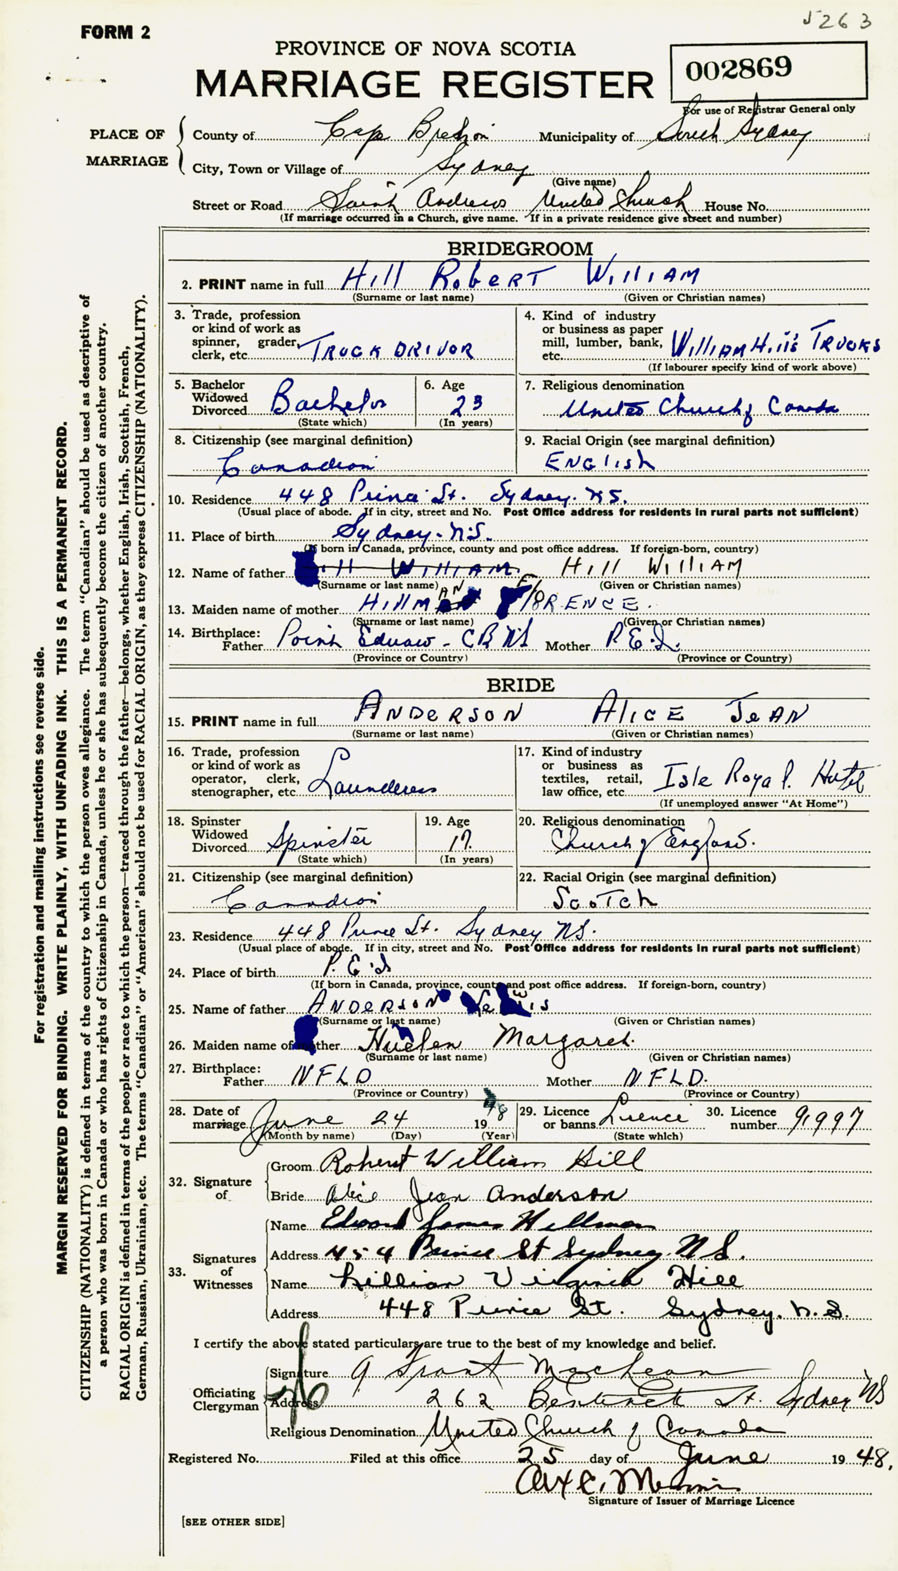 5263
FORM 2
PROVINCE OF NOVA SCOTIA
MARRIAGE REGISTER
002869
For use of Registrar General only
PLACE OF MARRIAGE
County of Cap Breton Municipality of South Sydney
City, Town or Village of Sydney
(Give name)
Street or Road Saint Andrews United Church House No.
(If marriage occurred in a Church, give name. If in a private residence give street and number)
BRIDEGROOM
2. PRINT name in full Hill Robert William
(Surname or last name) (Given or Christian names)
3. Trade, profession or kind of work as spinner, grader, clerk, etc. TRUCK DRIVOR
4. Kind of industry or business as paper mill, lumber, bank, etc. William Hill's Trucks
(If labourer specify kind of work above)
5. Bachelor Widowed Divorced Bachelor
(State which)
6. Age 23
(In years)
7. Religious denomination United Church of Canada
8. Citizenship (see marginal definition) Canadian
9. Racial Origin (see marginal definition) ENGlish
10. Residence 448 Prince St. Sydney. NS.
(Usual place of abode. If in city, street and No. Post Office address for residents in rural parts not sufficient)
11. Place of birth Sydney. N.S.
(If born in Canada, province, county and post office address. If foreign-born, country)
12. Name of father Hill William Hill William
(Surname or last name) (Given or Christian names)
13. Maiden name of mother HillmAN FlORENCE.
(Surname or last name) (Given or Christian names)
14. Birthplace: Father Point Edward - CB NS Mother P.E.I.
(Province or Country) (Province or Country)
BRIDE
15. PRINT name in full ANDERSON AliCE JEAN
(Surname or last name) (Given or Christian names)
16. Trade, profession or kind of work as operator, clerk, stenographer, etc. Launderess
17. Kind of industry or business as textiles, retail, law office, etc. Isle Royal Hotel
(If unemployed answer "At Home")
18. Spinster Widowed Divorced Spinster
(State which)
19. Age 17.
(In years)
20. Religious denomination Church of England.
21. Citizenship (see marginal definition) Canadian
22. Racial Origin (see marginal definition) Scotch
23. Residence 448 Prince St. Sydney NS.
(Usual place of abode. If in city, street and No. Post Office address for residents in rural parts not sufficient)
24. Place of birth P.E.I
(If born in Canada, province, county and post office address. If foreign-born, country)
25. Name of father ANDERSON
(Surname or last name) (Given or Christian names)
26. Maiden name of mother Margaret.
(Surname or last name) (Given or Christian names)
27. Birthplace: Father NFLD Mother NFLD.
(Province or Country) (Province or Country)
28. Date of marriage June 24 1948
(Month by name) (Day) (Year)
29. Licence or banns Licence
(State which)
30. Licence number 9997
32. Signature of
Groom Robert William Hill
Bride Alice Jean Anderson
33. Signatures of Witnesses
Name Edward James Hillman
Address 454 Prince St Sydney. N.S.
Name Lillian Virginia Hill
Address 448 Prince St. Sydney. N.S.
I certify the above stated particulars are true to the best of my knowledge and belief.
Officiating Clergyman
Signature Grant MacLean
Address 262 Bentinck St. Sydney NS
Religious Denomination United Church of Canada
Registered No. Filed at this office 25 day of June 1948.
Signature of Issuer of Marriage Licence
[SEE OTHER SIDE]
For registration and mailing instructions see reverse side.
MARGIN RESERVED FOR BINDING. WRITE PLAINLY, WITH UNFADING INK. THIS IS A PERMANENT RECORD.
CITIZENSHIP (NATIONALITY) is defined in terms of the country to which the person owes allegiance. The term "Canadian" should be used as descriptive of
a person who was born in Canada or who has rights of Citizenship in Canada, unless he or she has subsequently become the citizen of another country.
RACIAL ORIGIN is defined in terms of the people or race to which the person—traced through the father—belongs, whether English, Irish, Scottish, French,
German, Russian, Ukrainian, etc. The terms "Canadian" or "American" should not be used for RACIAL ORIGIN, as they express CITIZENSHIP (NATIONALITY).